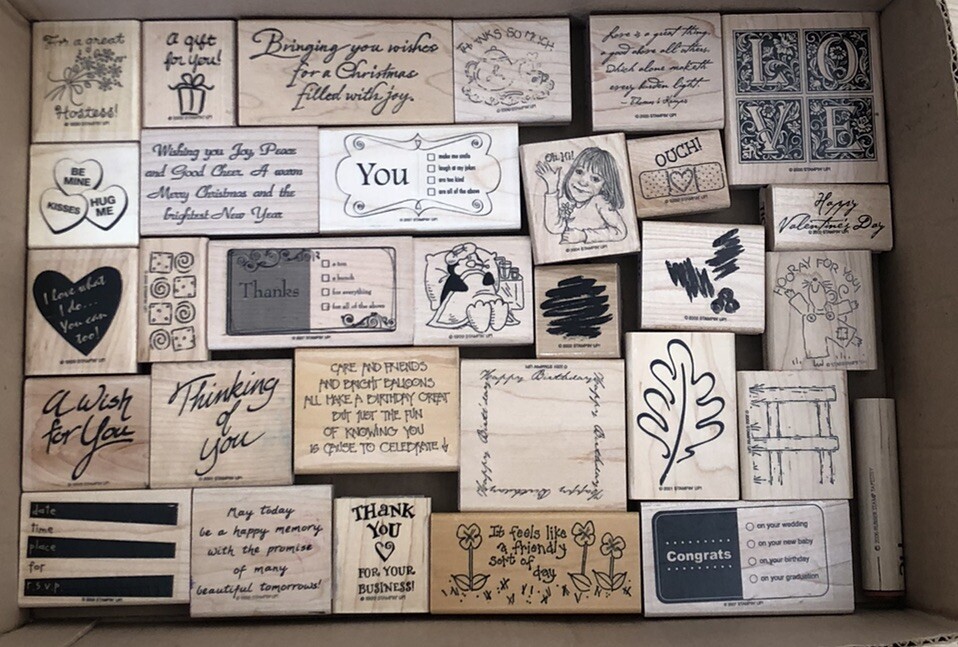 For a great
Hostess!
A gift
for you!
Bringing you wishes
for a Christmas
filled with joy.
THANKS SO MUCH
Love is a great thing,
a good above all others,
which alone maketh
every burden light.
- Thomas à Kempis
LO
VE
BE
MINE
KISSES
HUG
ME
Wishing you Joy, Peace
and Good Cheer. A warm
Merry Christmas and the
brightest New Year
You
make me smile
laugh at my jokes
are too kind
are all of the above
Oh, Hi!
OUCH!
Happy
Valentine's Day
I love what
I do...
You can
too!
Thanks
a ton
a bunch
for everything
for all of the above
HOORAY FOR YOU!
A Wish
for You
Thinking
of
you
CAKE AND FRIENDS
AND BRIGHT BALLOONS
ALL MAKE A BIRTHDAY GREAT
BUT JUST THE FUN
OF KNOWING YOU
IS CAUSE TO CELEBRATE!
Happy Birthday
Happy Birthday
Happy Birthday
Happy Birthday
date
time
place
for
r.s.v.p.
May today
be a happy memory
with the promise
of many
beautiful tomorrows!
THANK
YOU
FOR YOUR
BUSINESS!
It feels like
a friendly
sort of
day
Congrats
on your wedding
on your new baby
on your birthday
on your graduation